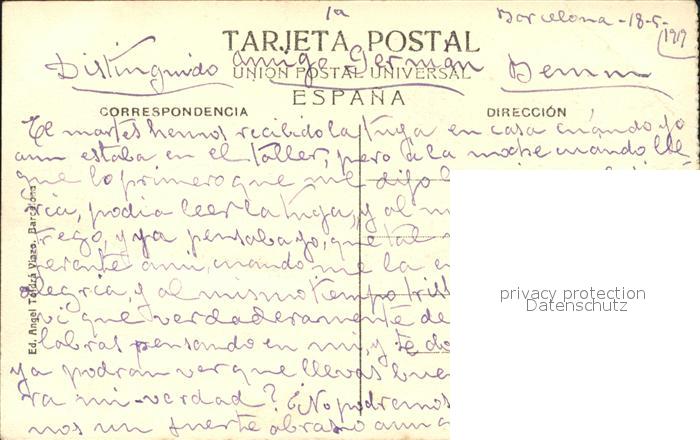 1ª
Barcelona - 18-5-1919
TARJETA POSTAL
Distinguido amigo German
UNION POSTAL UNIVERSAL
ESPAÑA
CORRESPONDENCIA
DIRECCIÓN
El martes hemos recibido la tuya en casa cuando yo
aun estaba en el taller, pero a la noche cuando lle-
gue lo primero que me dijo
ria, podia leer la tuya, y al m
trego, y ya pensaba yo, que tal
aun, cuando me la e
alegria, y al mismo tiempo trist
vi que verdaderamente de
labras pensando en mi, y te do
ya podran ver que llevas bue
ra mi-verdad? ¿No podremos
nos un fuerte abraso aun a
Ed. Angel Toldrá Viazo. Barcelona
privacy protection
Datenschutz